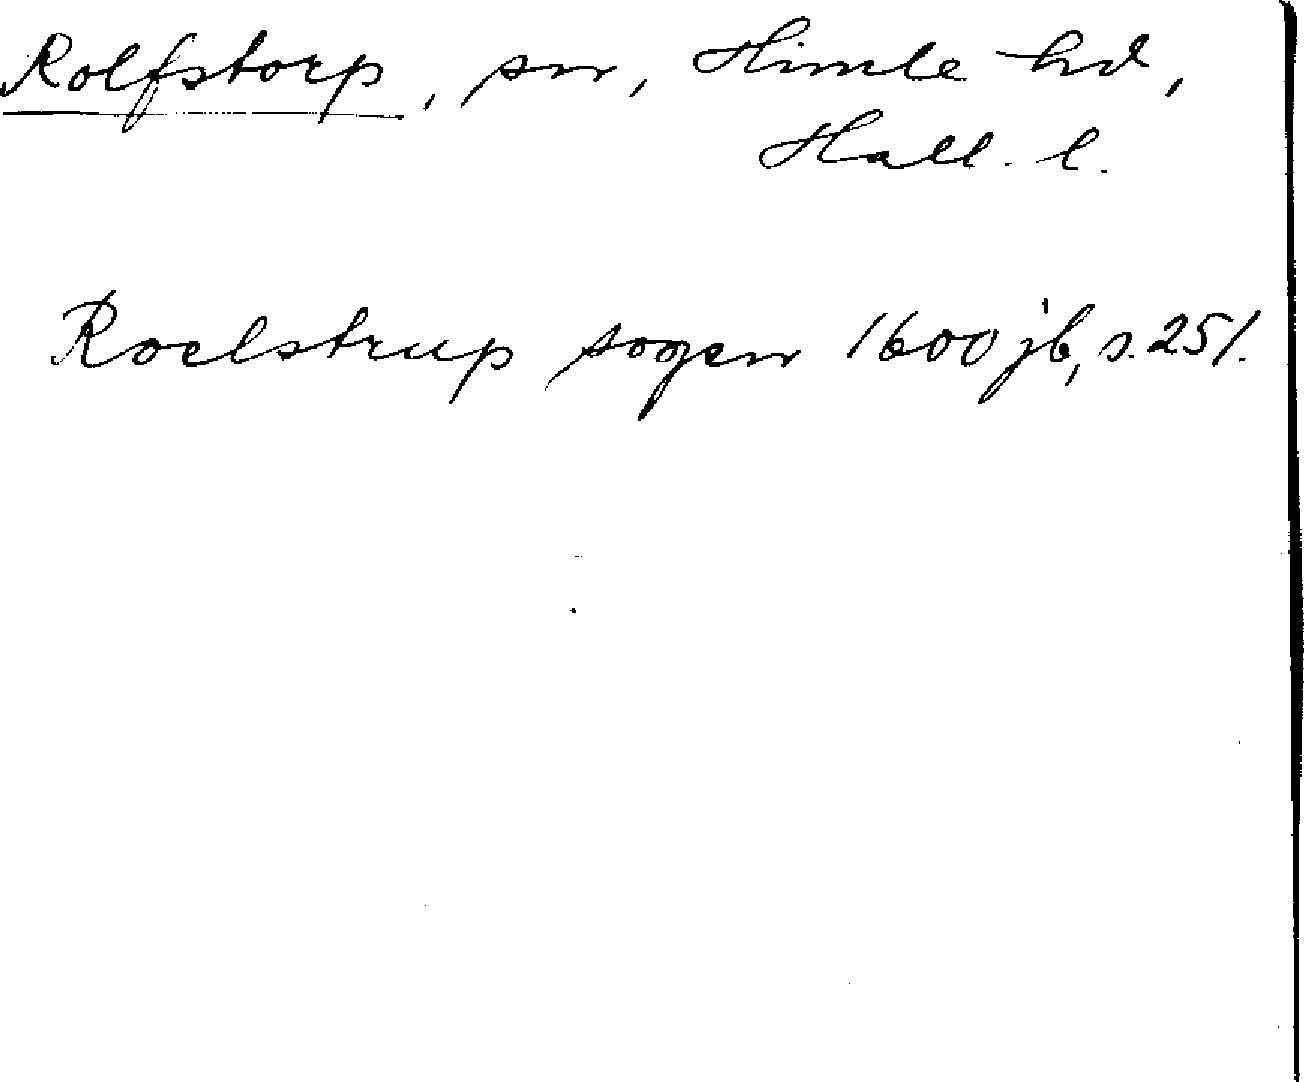 Rolfstorp, sn, Himle hd,
Hall. l.
Roelstrup sogen 1600 jb, s. 251.